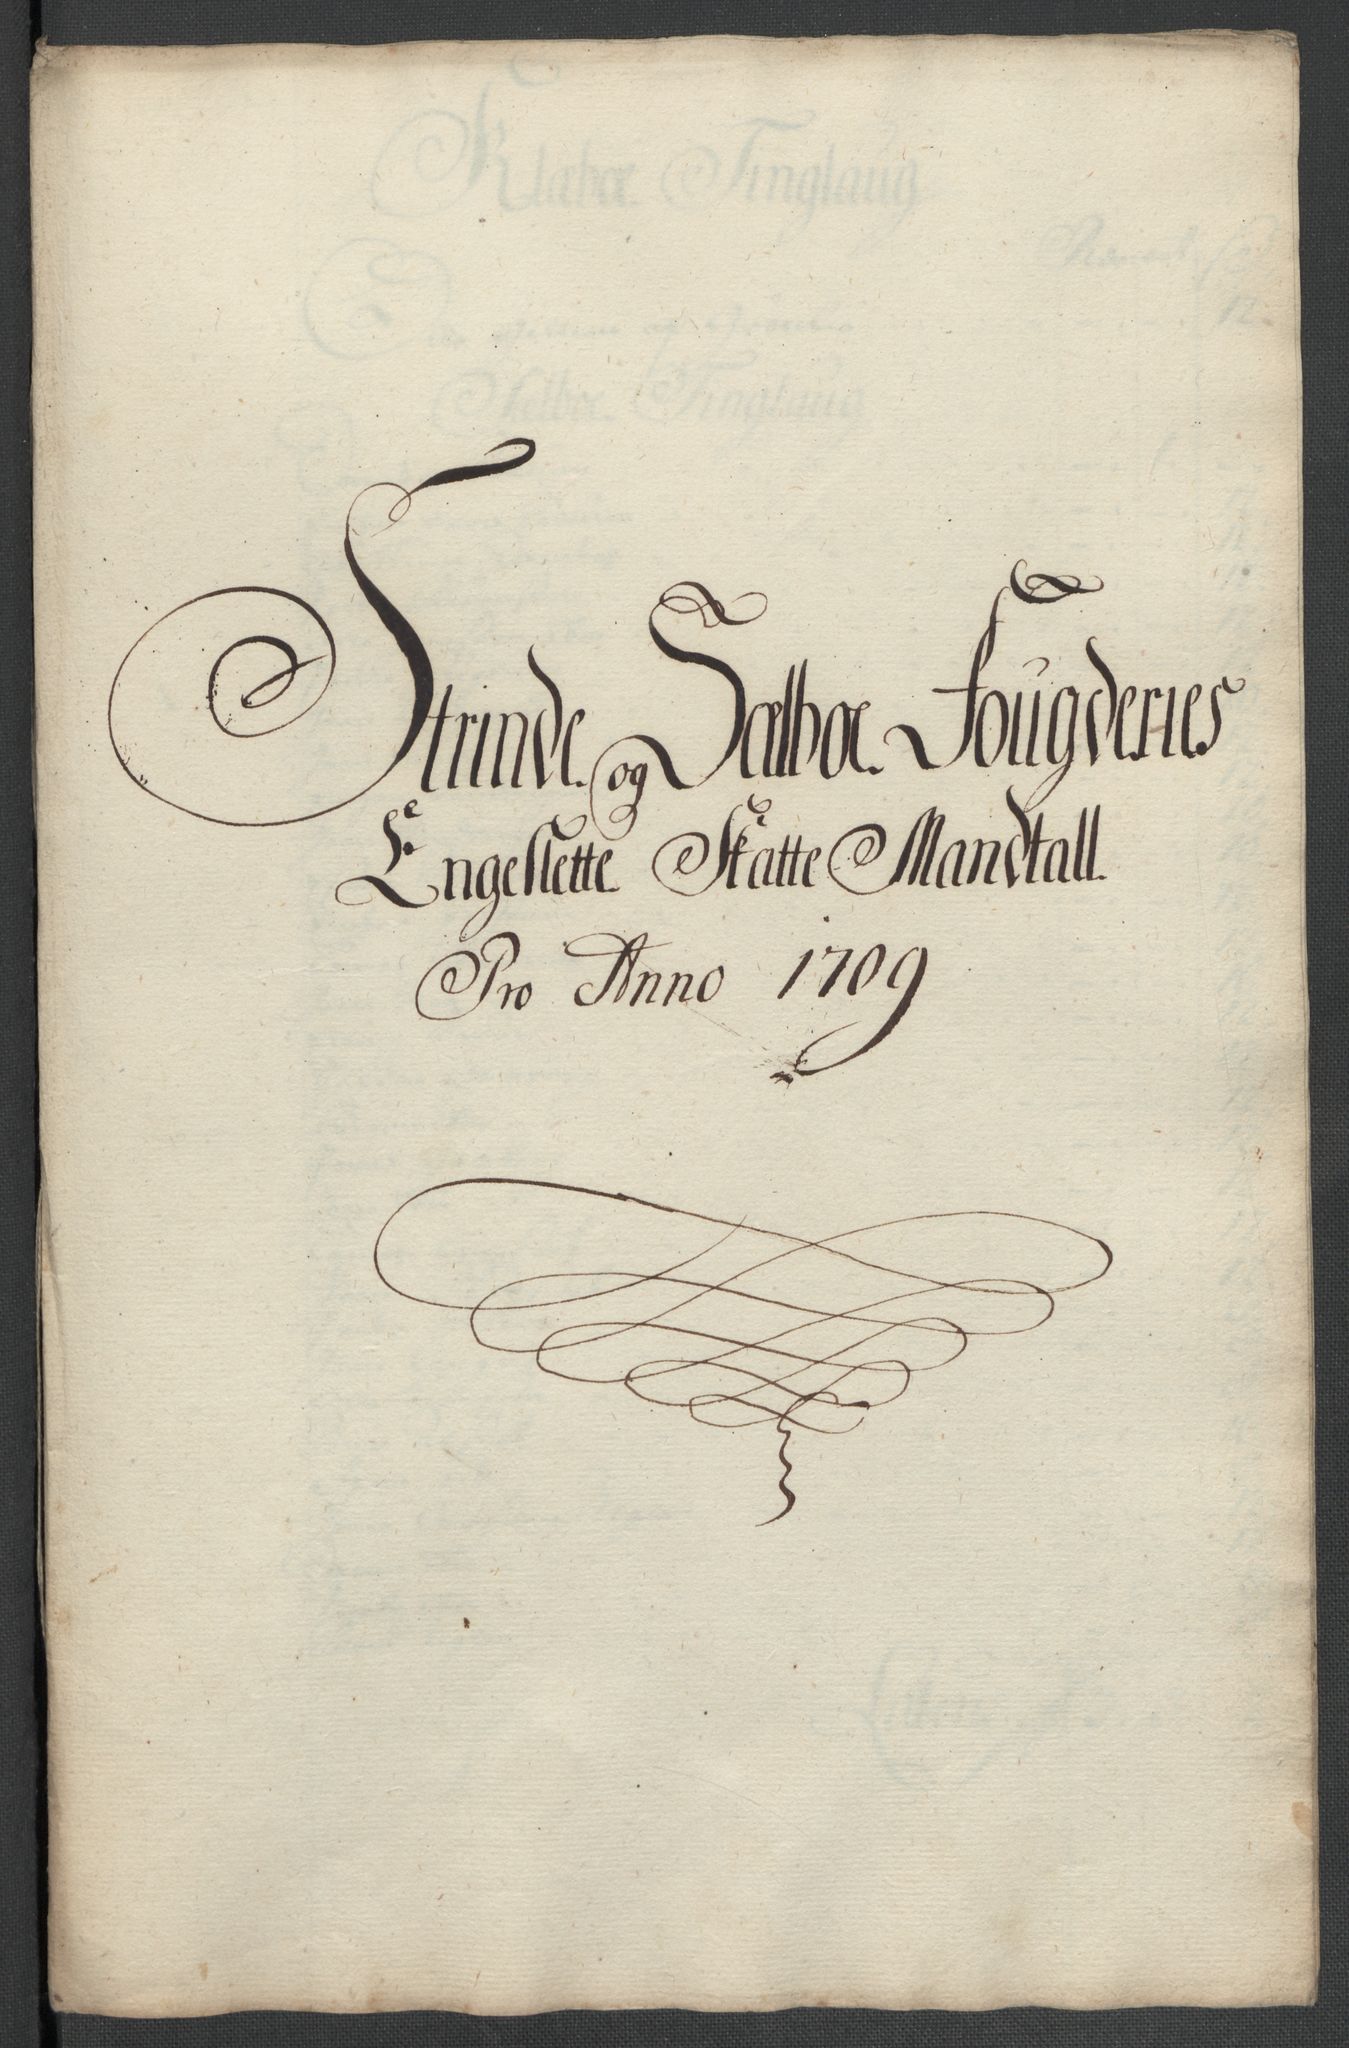 Strinde og Sælboe Fougderies
Engeslette Skatte Mandtall
Pro Anno 1709